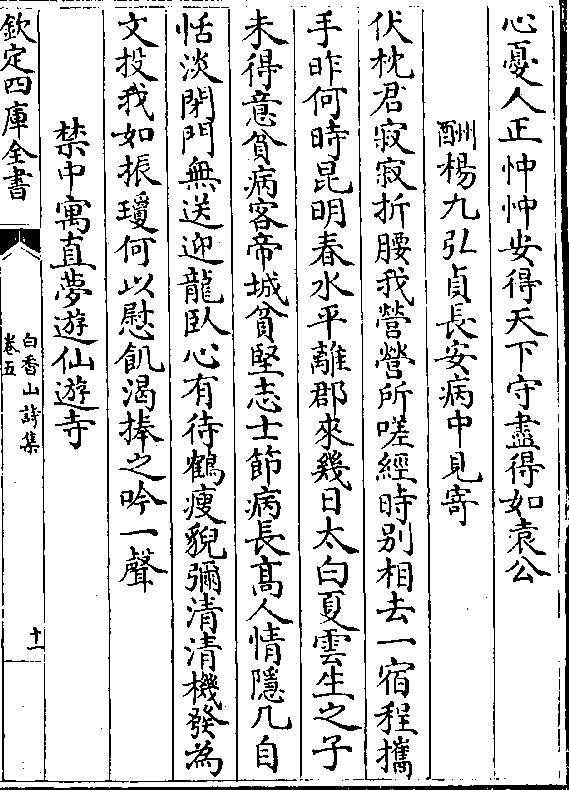 心憂人正忡忡安得天下守盡得如袁公
酬楊九弘貞長安病中見寄
伏枕君寂寂折腰我營營所嗟經時别相去一宿程攜
手昨何時昆明春水平離郡來幾日太白夏雲生之子
未得意貧病客帝城貧堅志士節病長髙人情隱几自
恬淡閉門無送迎龍臥心有待鶴瘦貌彌清清機發為
文投我如振瓊何以慰飢渴捧之吟一聲
禁中寓直夢遊仙遊寺
欽定四庫全書
白香山詩集
卷五
十一